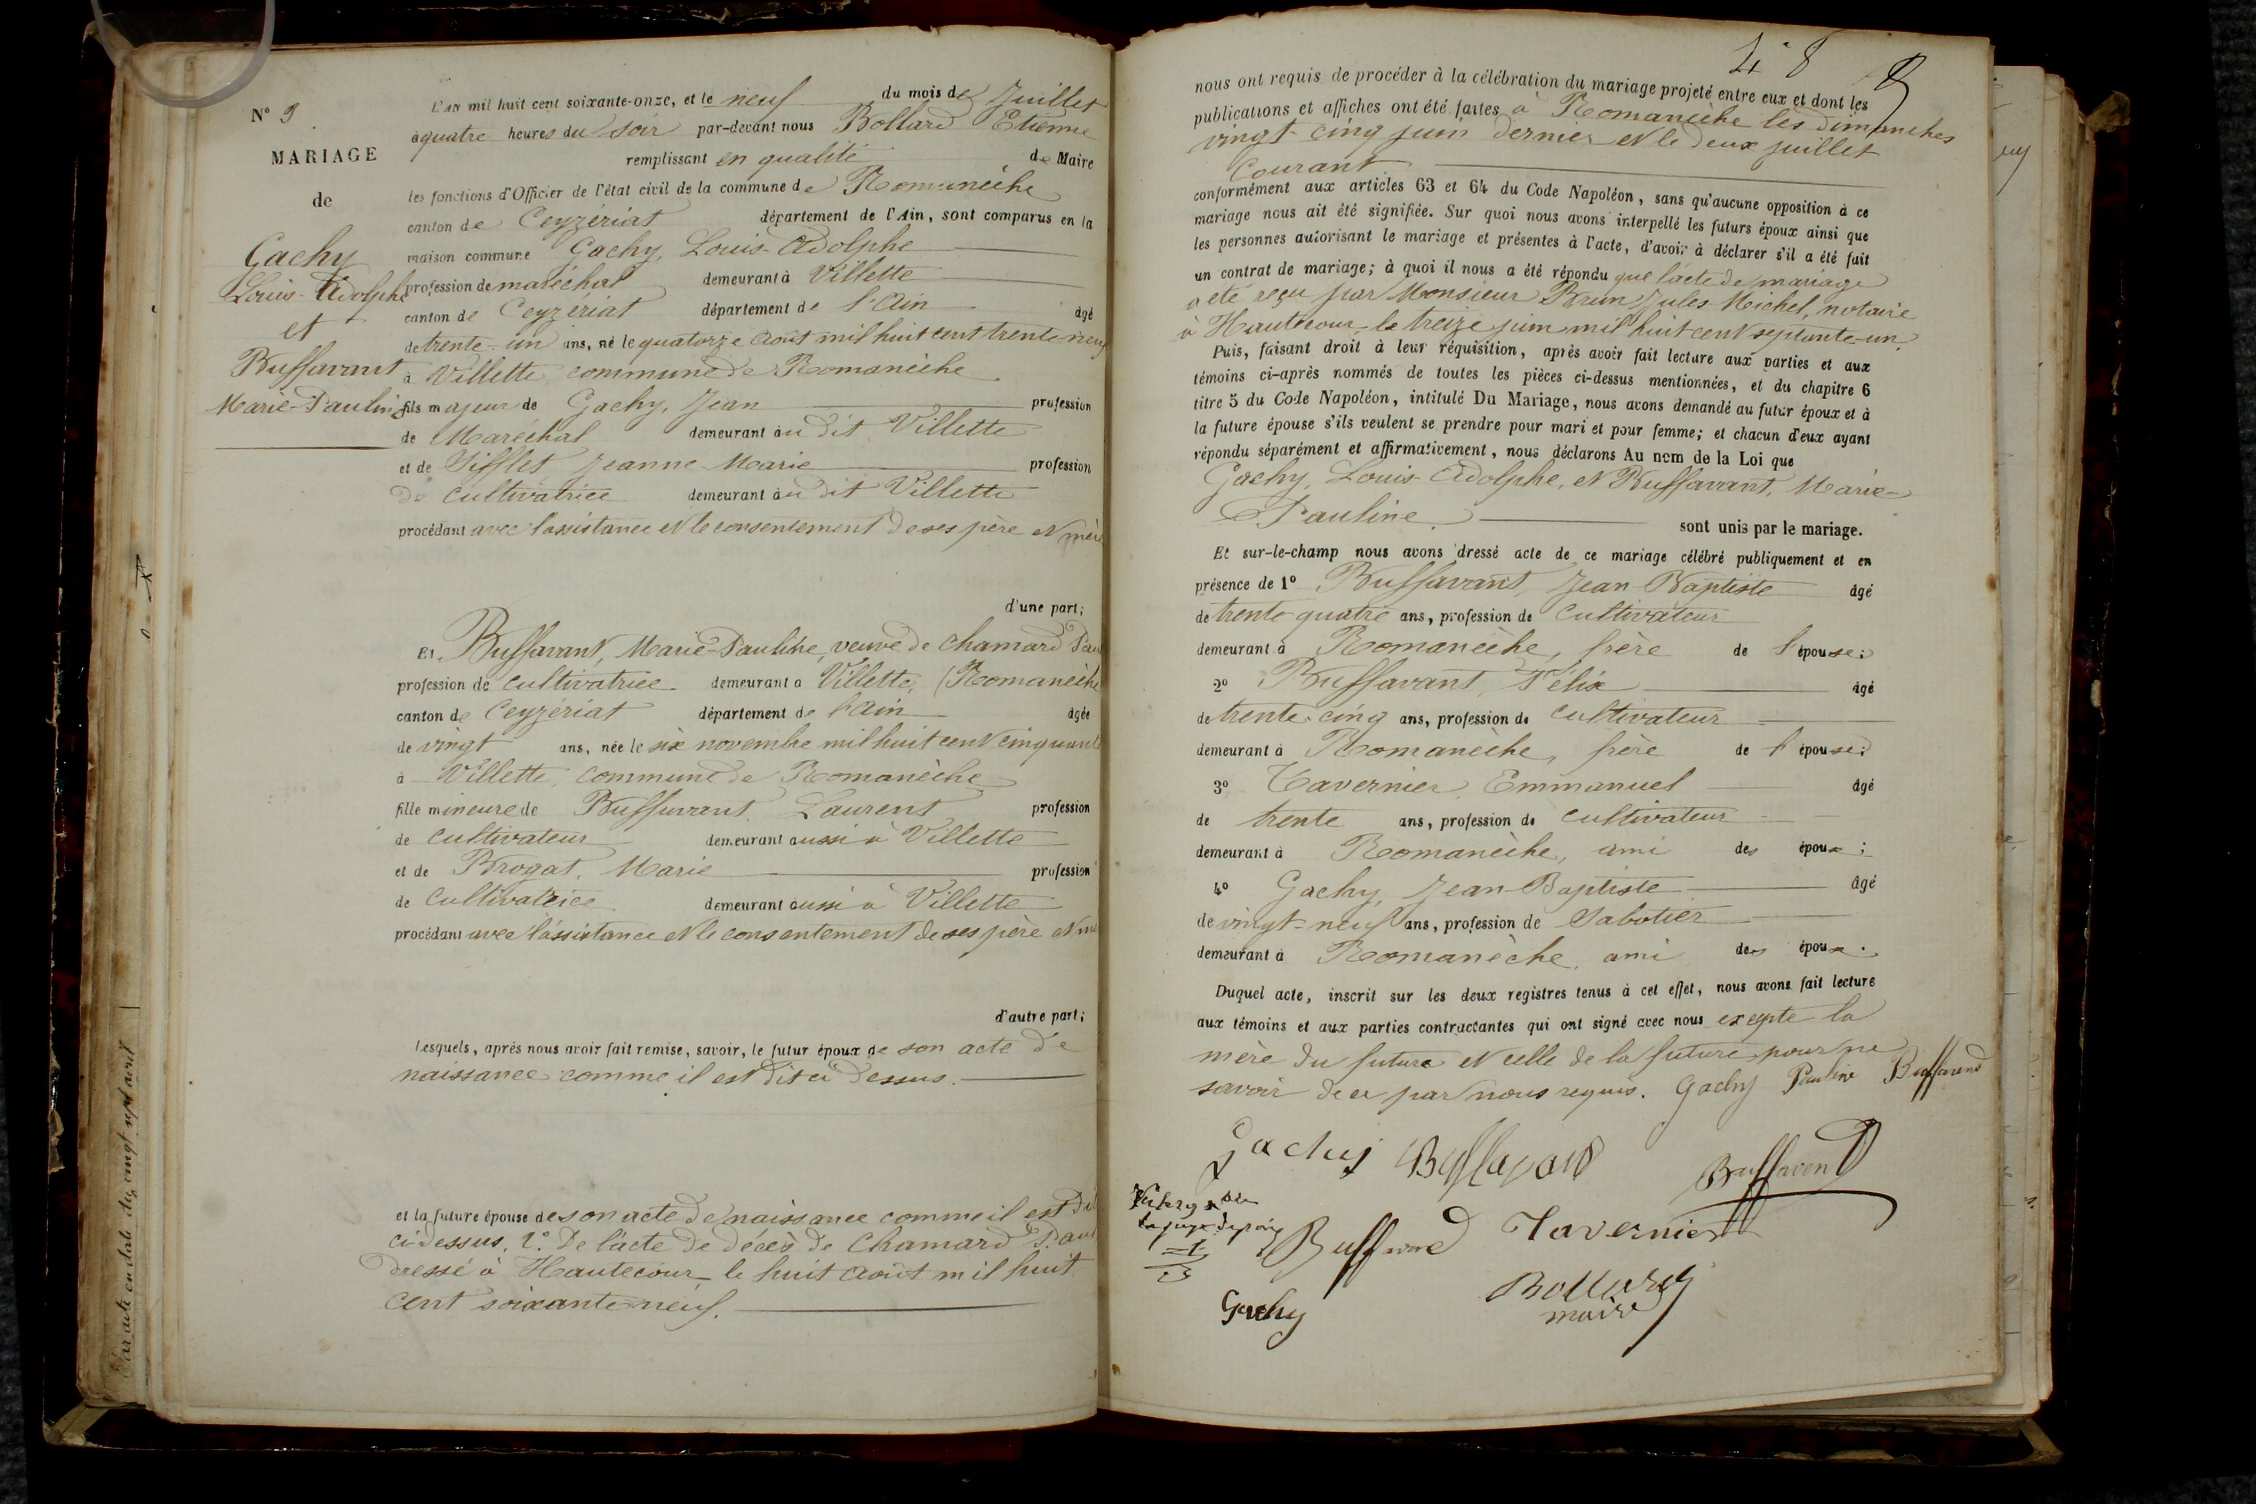 N° 9
MARIAGE
de
Gachy
Louis-Adolphe
et
Buffavant
Marie-Pauline
L'an mil huit cent soixante-onze, et le neuf du mois de Juillet
à quatre heures du soir par-devant nous Bollard Etienne
remplissant en qualité de Maire
les fonctions d'Officier de l'état civil de la commune de Romanèche
canton de Ceyzériat département de l'Ain, sont comparus en la
maison commune Gachy, Louis-Adolphe
profession de maréchal demeurant à Villette
canton de Ceyzériat département de l'Ain âgé
de trente-un ans, né le quatorze août mil huit cent trente-neuf
à Villette, commune de Romanèche
fils majeur de Gachy, Jean profession
de Maréchal demeurant au dit Villette
et de Sifflet Jeanne-Marie profession
de cultivatrice demeurant au dit Villette
procédant avec l'assistance et le consentement de ses père et mère
d'une part;
Et Buffavant, Marie-Pauline, veuve de Chamard Pau
profession de cultivatrice demeurant à Villette, (Romanèche
canton de Ceyzériat département de l'Ain âgée
de vingt ans, née le six novembre mil huit cent cinquante
à Villette, commune de Romanèche
fille mineure de Buffavant Laurent profession
de cultivateur demeurant aussi à Villette
et de Brogat, Marie profession
de cultivatrice demeurant aussi à Villette
procédant avec l'assistance et le consentement de ses père et mè
d'autre part;
Lesquels, après nous avoir fait remise, savoir, le futur époux de son acte de
naissance comme il est dit ci dessus.
et la future épouse de son acte de naissance comme il est dit
ci-dessus, 2° De l'acte de décès de Chamard Paul
dressé à Hautecour le huit août mil huit
cent soixante neuf.
48
nous ont requis de procéder à la célébration du mariage projeté entre eux et dont les
publications et affiches ont été faites à Romanèche les dimanches
vingt-cinq juin dernier et le deux juillet
courant
conformément aux articles 63 et 64 du Code Napoléon, sans qu'aucune opposition à ce
mariage nous ait été signifiée. Sur quoi nous avons interpellé les futurs époux ainsi que
les personnes autorisant le mariage et présentes à l'acte, d'avoir à déclarer s'il a été fait
un contrat de mariage; à quoi il nous a été répondu que l'acte de mariage
a été reçu par Monsieur Brun Jules-Michel, notaire
à Hautecour le treize juin mil huit cent septante-un
Puis, faisant droit à leur réquisition, après avoir fait lecture aux parties et aux
témoins ci-après nommés de toutes les pièces ci-dessus mentionnées, et du chapitre 6
titre 5 du Code Napoléon, intitulé Du Mariage, nous avons demandé au futur époux et à
la future épouse s'ils veulent se prendre pour mari et pour femme; et chacun d'eux ayant
répondu séparément et affirmativement, nous déclarons Au nom de la Loi que
Gachy, Louis-Adolphe, et Buffavant, Marie-
Pauline sont unis par le mariage.
Et sur-le-champ nous avons dressé acte de ce mariage célébré publiquement et en
présence de 1° Buffavant, Jean Baptiste âgé
de trente quatre ans, profession de Cultivateur
demeurant à Romanèche, frère de l'épouse;
2° Buffavant, Félix âgé
de trente-cinq ans, profession de cultivateur
demeurant à Romanèche, frère de l'épouse;
3° Tavernier Emmanuel âgé
de trente ans, profession de cultivateur
demeurant à Romanèche, ami des époux;
4° Gachy, Jean-Baptiste âgé
de vingt-neuf ans, profession de Sabotier
demeurant à Romanèche, ami des époux.
Duquel acte, inscrit sur les deux registres tenus à cet effet, nous avons fait lecture
aux témoins et aux parties contractantes qui ont signé avec nous excepté la
mère du future et celle de la future pour ne
savoir de ce par nous requis. Gachy Pauline Buffavend
Gachy Buffavand Buffavent
Buffavand Tavernier
Gachy Bollard
maire